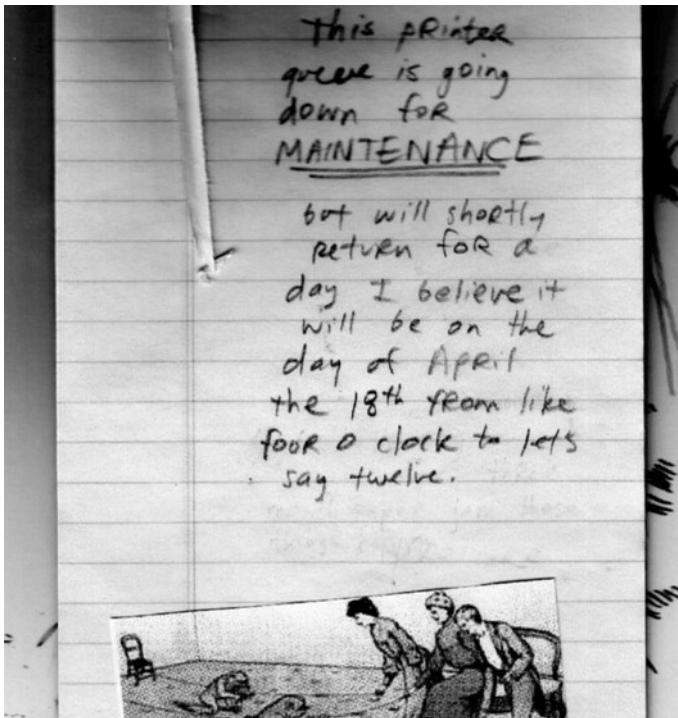 This printer
queue is going
down for
MAINTENANCE
but will shortly
return for a
day I believe it
will be on the
day of April
the 18th from like
foor o clock to lets
say twelve.
paper jam those
things happen